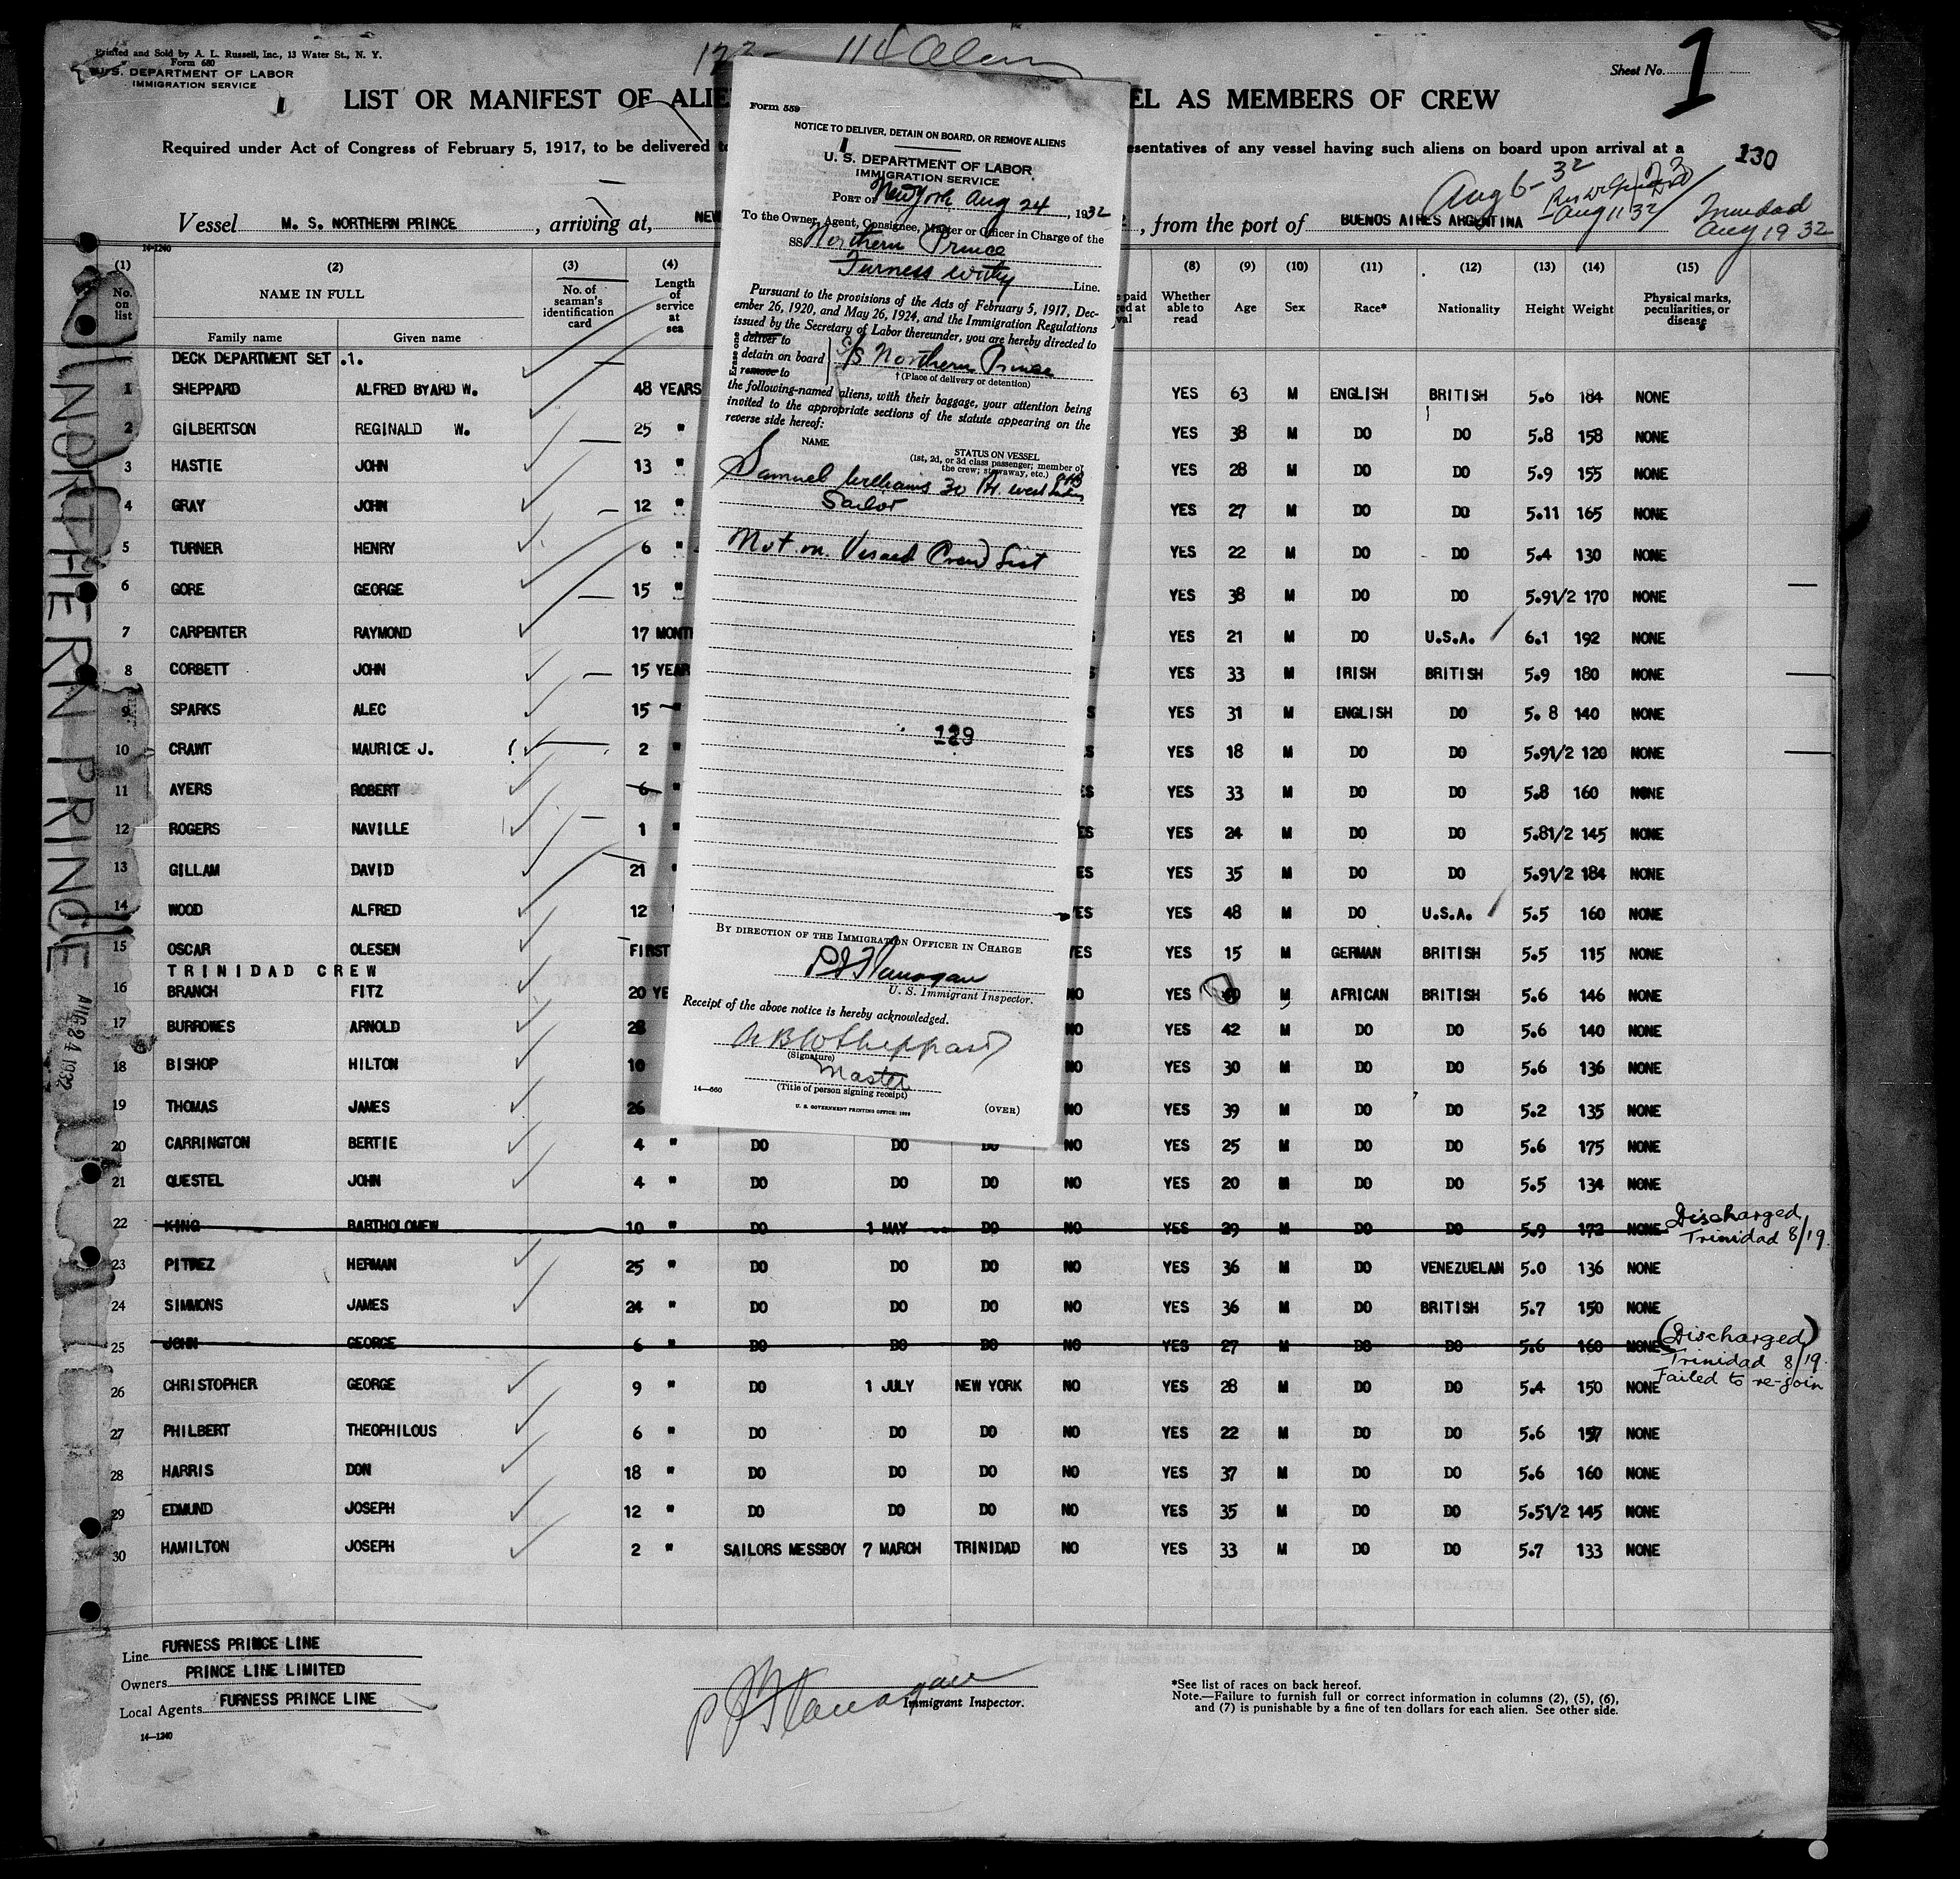 Printed and Sold by A. L. Russell, Inc., 13 Water St., N. Y.
Form 680
U.S. DEPARTMENT OF LABOR
IMMIGRATION SERVICE
Sheet No. 1
LIST OR MANIFEST OF ALIE
EL AS MEMBERS OF CREW
Required under Act of Congress of February 5, 1917, to be delivered
esentatives of any vessel having such aliens on board upon arrival at a
130
Aug 6-32
Aug 11 32
Trinidad
Aug 19 32
Vessel M. S. NORTHERN PRINCE, arriving at, NEW
, from the port of BUENOS AIRES ARGENTINA
14-1240
(1) (2) (3) (4) (8) (9) (10) (11) (12) (13) (14) (15)
No. on list NAME IN FULL No. of seaman's identification card Length of service at sea Whether able to read Age Sex Race* Nationality Height Weight Physical marks, peculiarities, or disease
Family name Given name
DECK DEPARTMENT SET .1.
1 SHEPPARD ALFRED BYARD W. 48 YEARS YES 63 M ENGLISH BRITISH 5.6 184 NONE
2 GILBERTSON REGINALD W. 25 " YES 38 M DO DO 5.8 158 NONE
3 HASTIE JOHN 13 " YES 28 M DO DO 5.9 155 NONE
4 GRAY JOHN 12 " YES 27 M DO DO 5.11 165 NONE
5 TURNER HENRY 6 " YES 22 M DO DO 5.4 130 NONE
6 GORE GEORGE 15 " YES 38 M DO DO 5.91/2 170 NONE
7 CARPENTER RAYMOND 17 MONT YES 21 M DO U.S.A. 6.1 192 NONE
8 CORBETT JOHN 15 YEAR YES 33 M IRISH BRITISH 5.9 180 NONE
9 SPARKS ALEC 15 YES 31 M ENGLISH DO 5.8 140 NONE
10 CRAWT MAURICE J. 2 " YES 18 M DO DO 5.91/2 120 NONE
11 AYERS ROBERT 6 " ES YES 33 M DO DO 5.8 160 NONE
12 ROGERS NAVILLE 1 " ES YES 24 M DO DO 5.81/2 145 NONE
13 GILLAM DAVID 21 ES YES 35 M DO DO 5.91/2 184 NONE
14 WOOD ALFRED 12 YES YES 48 M DO U.S.A. 5.5 160 NONE
15 OSCAR OLESEN FIRST YES YES 15 M GERMAN BRITISH 5.5 115 NONE
TRINIDAD CREW
16 BRANCH FITZ 20 YE NO YES M AFRICAN BRITISH 5.6 146 NONE
17 BURROWES ARNOLD 28 NO YES 42 M DO DO 5.6 140 NONE
18 BISHOP HILTON 10 NO YES 30 M DO DO 5.6 136 NONE
19 THOMAS JAMES 26 NO YES 39 M DO DO 5.2 135 NONE
20 CARRINGTON BERTIE 4 " DO DO DO NO YES 25 M DO DO 5.6 175 NONE
21 QUESTEL JOHN 4 " DO DO DO NO YES 20 M DO DO 5.5 134 NONE
22 KING BARTHOLOMEW 10 " DO 1 MAY DO NO YES 29 M DO DO 5.9 172 NONE Discharged Trinidad 8/19.
23 PITREZ HERMAN 25 " DO DO DO NO YES 36 M DO VENEZUELAN 5.0 136 NONE
24 SIMMONS JAMES 24 " DO DO DO NO YES 36 M DO BRITISH 5.7 150 NONE
25 JOHN GEORGE 6 " DO DO DO NO YES 27 M DO DO 5.6 160 NONE (Discharged) Trinidad 8/19. Failed to re-join
26 CHRISTOPHER GEORGE 9 " DO 1 JULY NEW YORK NO YES 28 M DO DO 5.4 150 NONE
27 PHILBERT THEOPHILOUS 6 " DO DO DO NO YES 22 M DO DO 5.6 157 NONE
28 HARRIS DON 18 " DO DO DO NO YES 37 M DO DO 5.6 160 NONE
29 EDMUND JOSEPH 12 " DO DO DO NO YES 35 M DO DO 5.51/2 145 NONE
30 HAMILTON JOSEPH 2 " SAILORS MESSBOY 7 MARCH TRINIDAD NO YES 33 M DO DO 5.7 133 NONE
Line FURNESS PRINCE LINE
Owners PRINCE LINE LIMITED
Local Agents FURNESS PRINCE LINE
14-1240
P J Flanagan
Immigrant Inspector.
*See list of races on back hereof.
Note.—Failure to furnish full or correct information in columns (2), (5), (6),
and (7) is punishable by a fine of ten dollars for each alien. See other side.
NORTHERN PRINCE
AUG 24 1932
Form 559
NOTICE TO DELIVER, DETAIN ON BOARD, OR REMOVE ALIENS
U. S. DEPARTMENT OF LABOR
IMMIGRATION SERVICE
PORT OF New York Aug 24, 1932
To the Owner, Agent, Consignee, Master or Officer in Charge of the
SS Northern Prince
Furness Withy Line.
Pursuant to the provisions of the Acts of February 5, 1917, Dec-
ember 26, 1920, and May 26, 1924, and the Immigration Regulations
issued by the Secretary of Labor thereunder, you are hereby directed to
Erase one
deliver to
detain on board
remove to
S/S Northern Prince
† (Place of delivery or detention)
the following-named aliens, with their baggage, your attention being
invited to the appropriate sections of the statute appearing on the
reverse side hereof:
NAME
STATUS ON VESSEL
(1st, 2d, or 3d class passenger; member of
the crew; stowaway, etc.)
Samuel Williams 30 Br. West Indies
Sailor
Not on Visaed Crew List
129
BY DIRECTION OF THE IMMIGRATION OFFICER IN CHARGE
P J Flanagan
U. S. Immigrant Inspector.
Receipt of the above notice is hereby acknowledged.
A B W Sheppard
(Signature)
Master
(Title of person signing receipt)
14—660
U. S. GOVERNMENT PRINTING OFFICE:
(OVER)